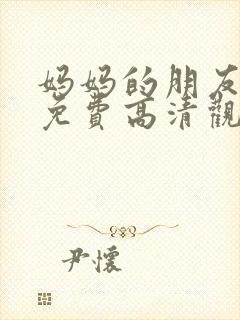 妈妈的朋友
免費高清觀
尹懷